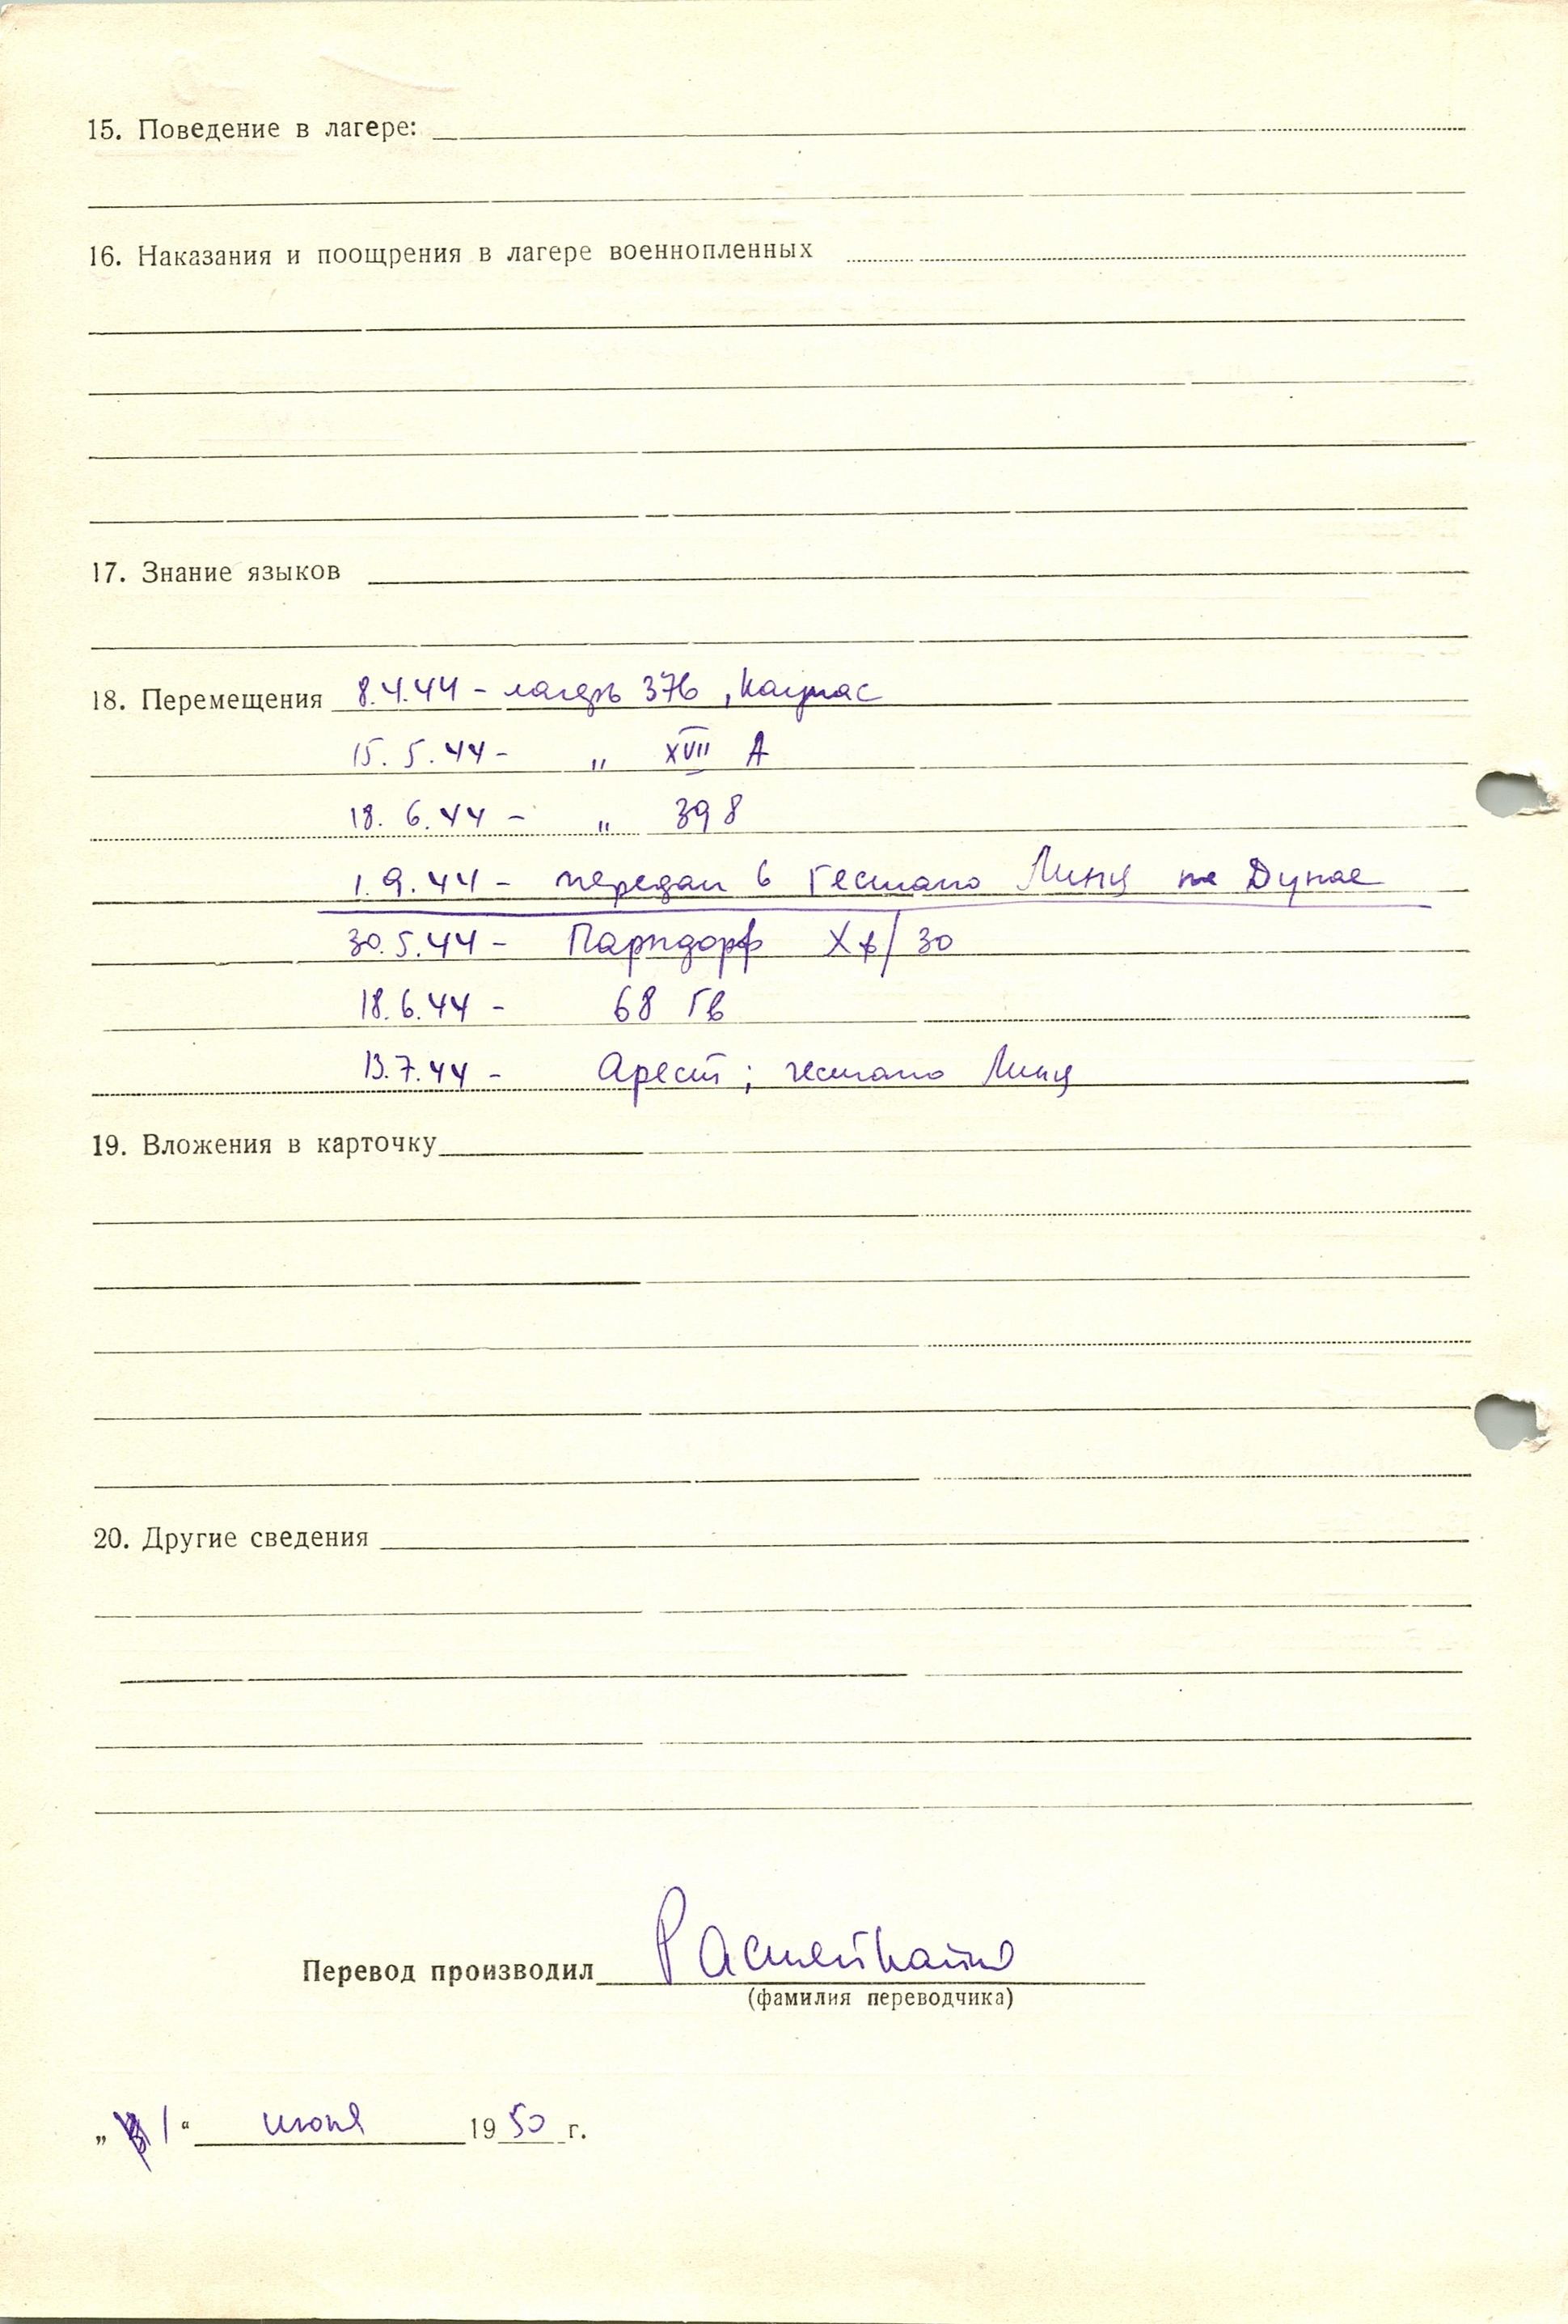 15. Поведение в лагере:
16. Наказания и поощрения в лагере военнопленных
17. Знание языков
18. Перемещения 8.4.44 - лагерь 376, Каунас
15. 5. 44 - " XVII А
18. 6. 44 - " 398
1. 9. 44 - передан в Гестапо Линц на Дунае
30. 5. 44 - Парндорф Хф/30
18. 6. 44 - 68 Гв
13. 7. 44 - Арест; гестапо Линц
19. Вложения в карточку
20. Другие сведения
Перевод производил
(фамилия переводчика)
„ 1 “ июня 1950 г.